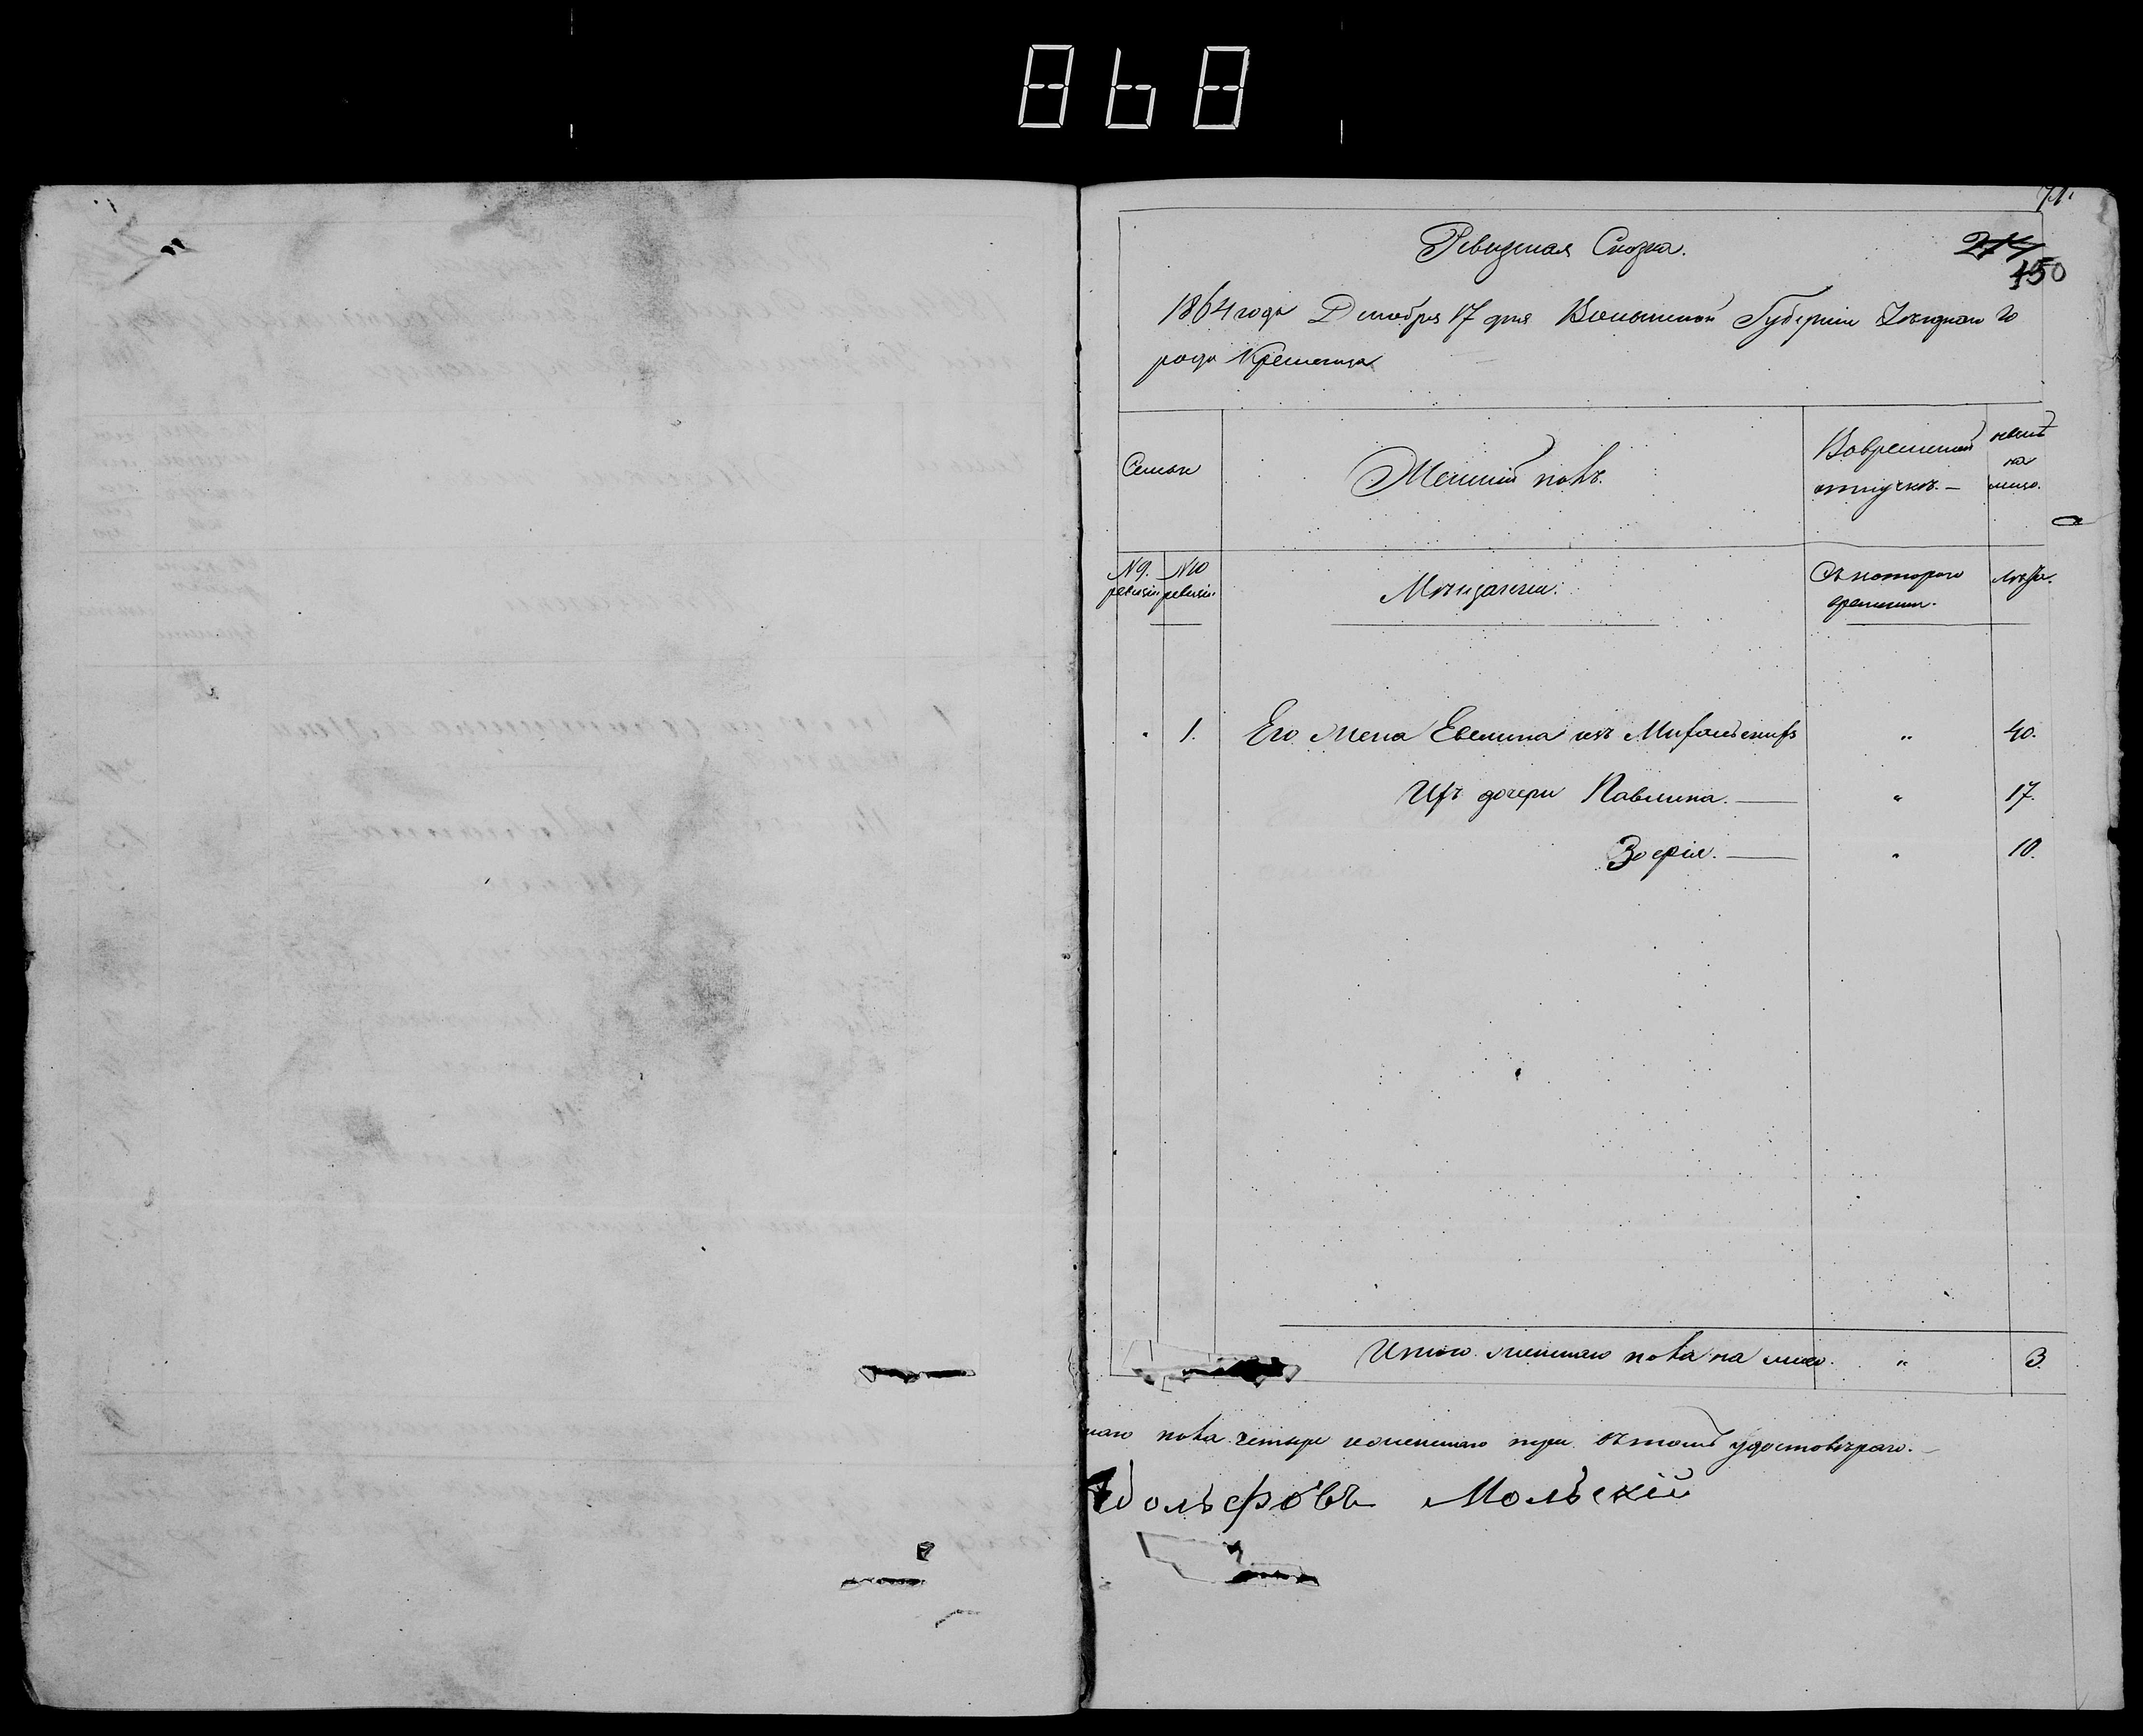 868
71.
Ревизская Сказка.
277
150
1864 года Декабря 17 дня Волынской Губерніи Уѣзднаго Го
рода Кременца
Семьи
Женскій полъ.
Вовременной
отлучкѣ. —
нынѣ
на
лицо.
№ 9. ревизіи
№ 10 ревизіи
Мѣщанки.
Съ котораго
времени.
Лѣта.
1. Его жена Евелина изъ " 40.
Ихъ дочери Павлина. — " 17.
Зофія. — " 10.
Итого женскаго пола на лицо. " 3.
пола четыре и женскаго три въ томъ удостовѣряю. —
Мольскій